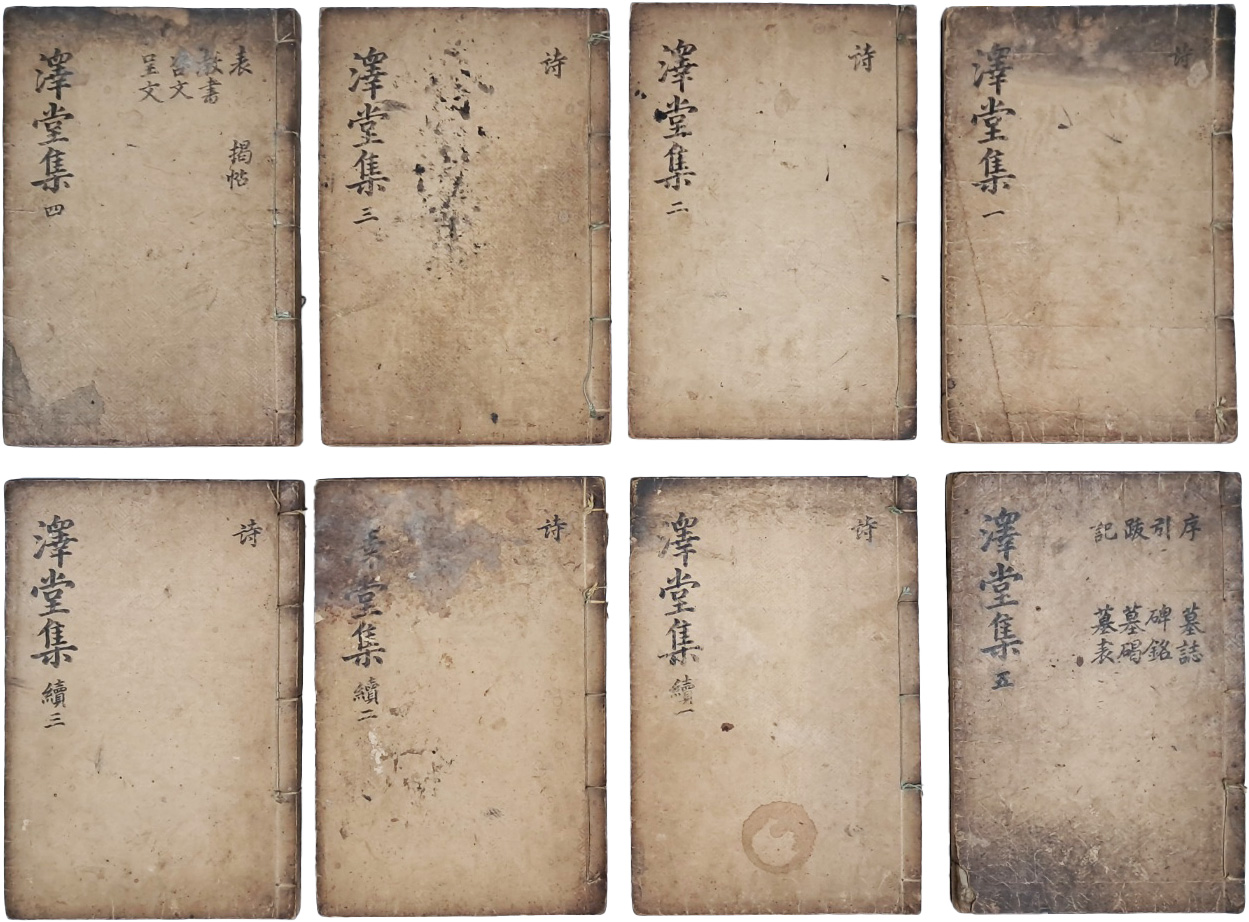 詩
澤堂集 一
詩
澤堂集 二
詩
澤堂集 三
表 揭帖
教書
咨文
呈文
澤堂集 四
序 墓誌
引 碑銘
跋 墓碣
記 墓表
澤堂集 五
詩
澤堂集 續一
詩
澤堂集 續二
詩
澤堂集 續三